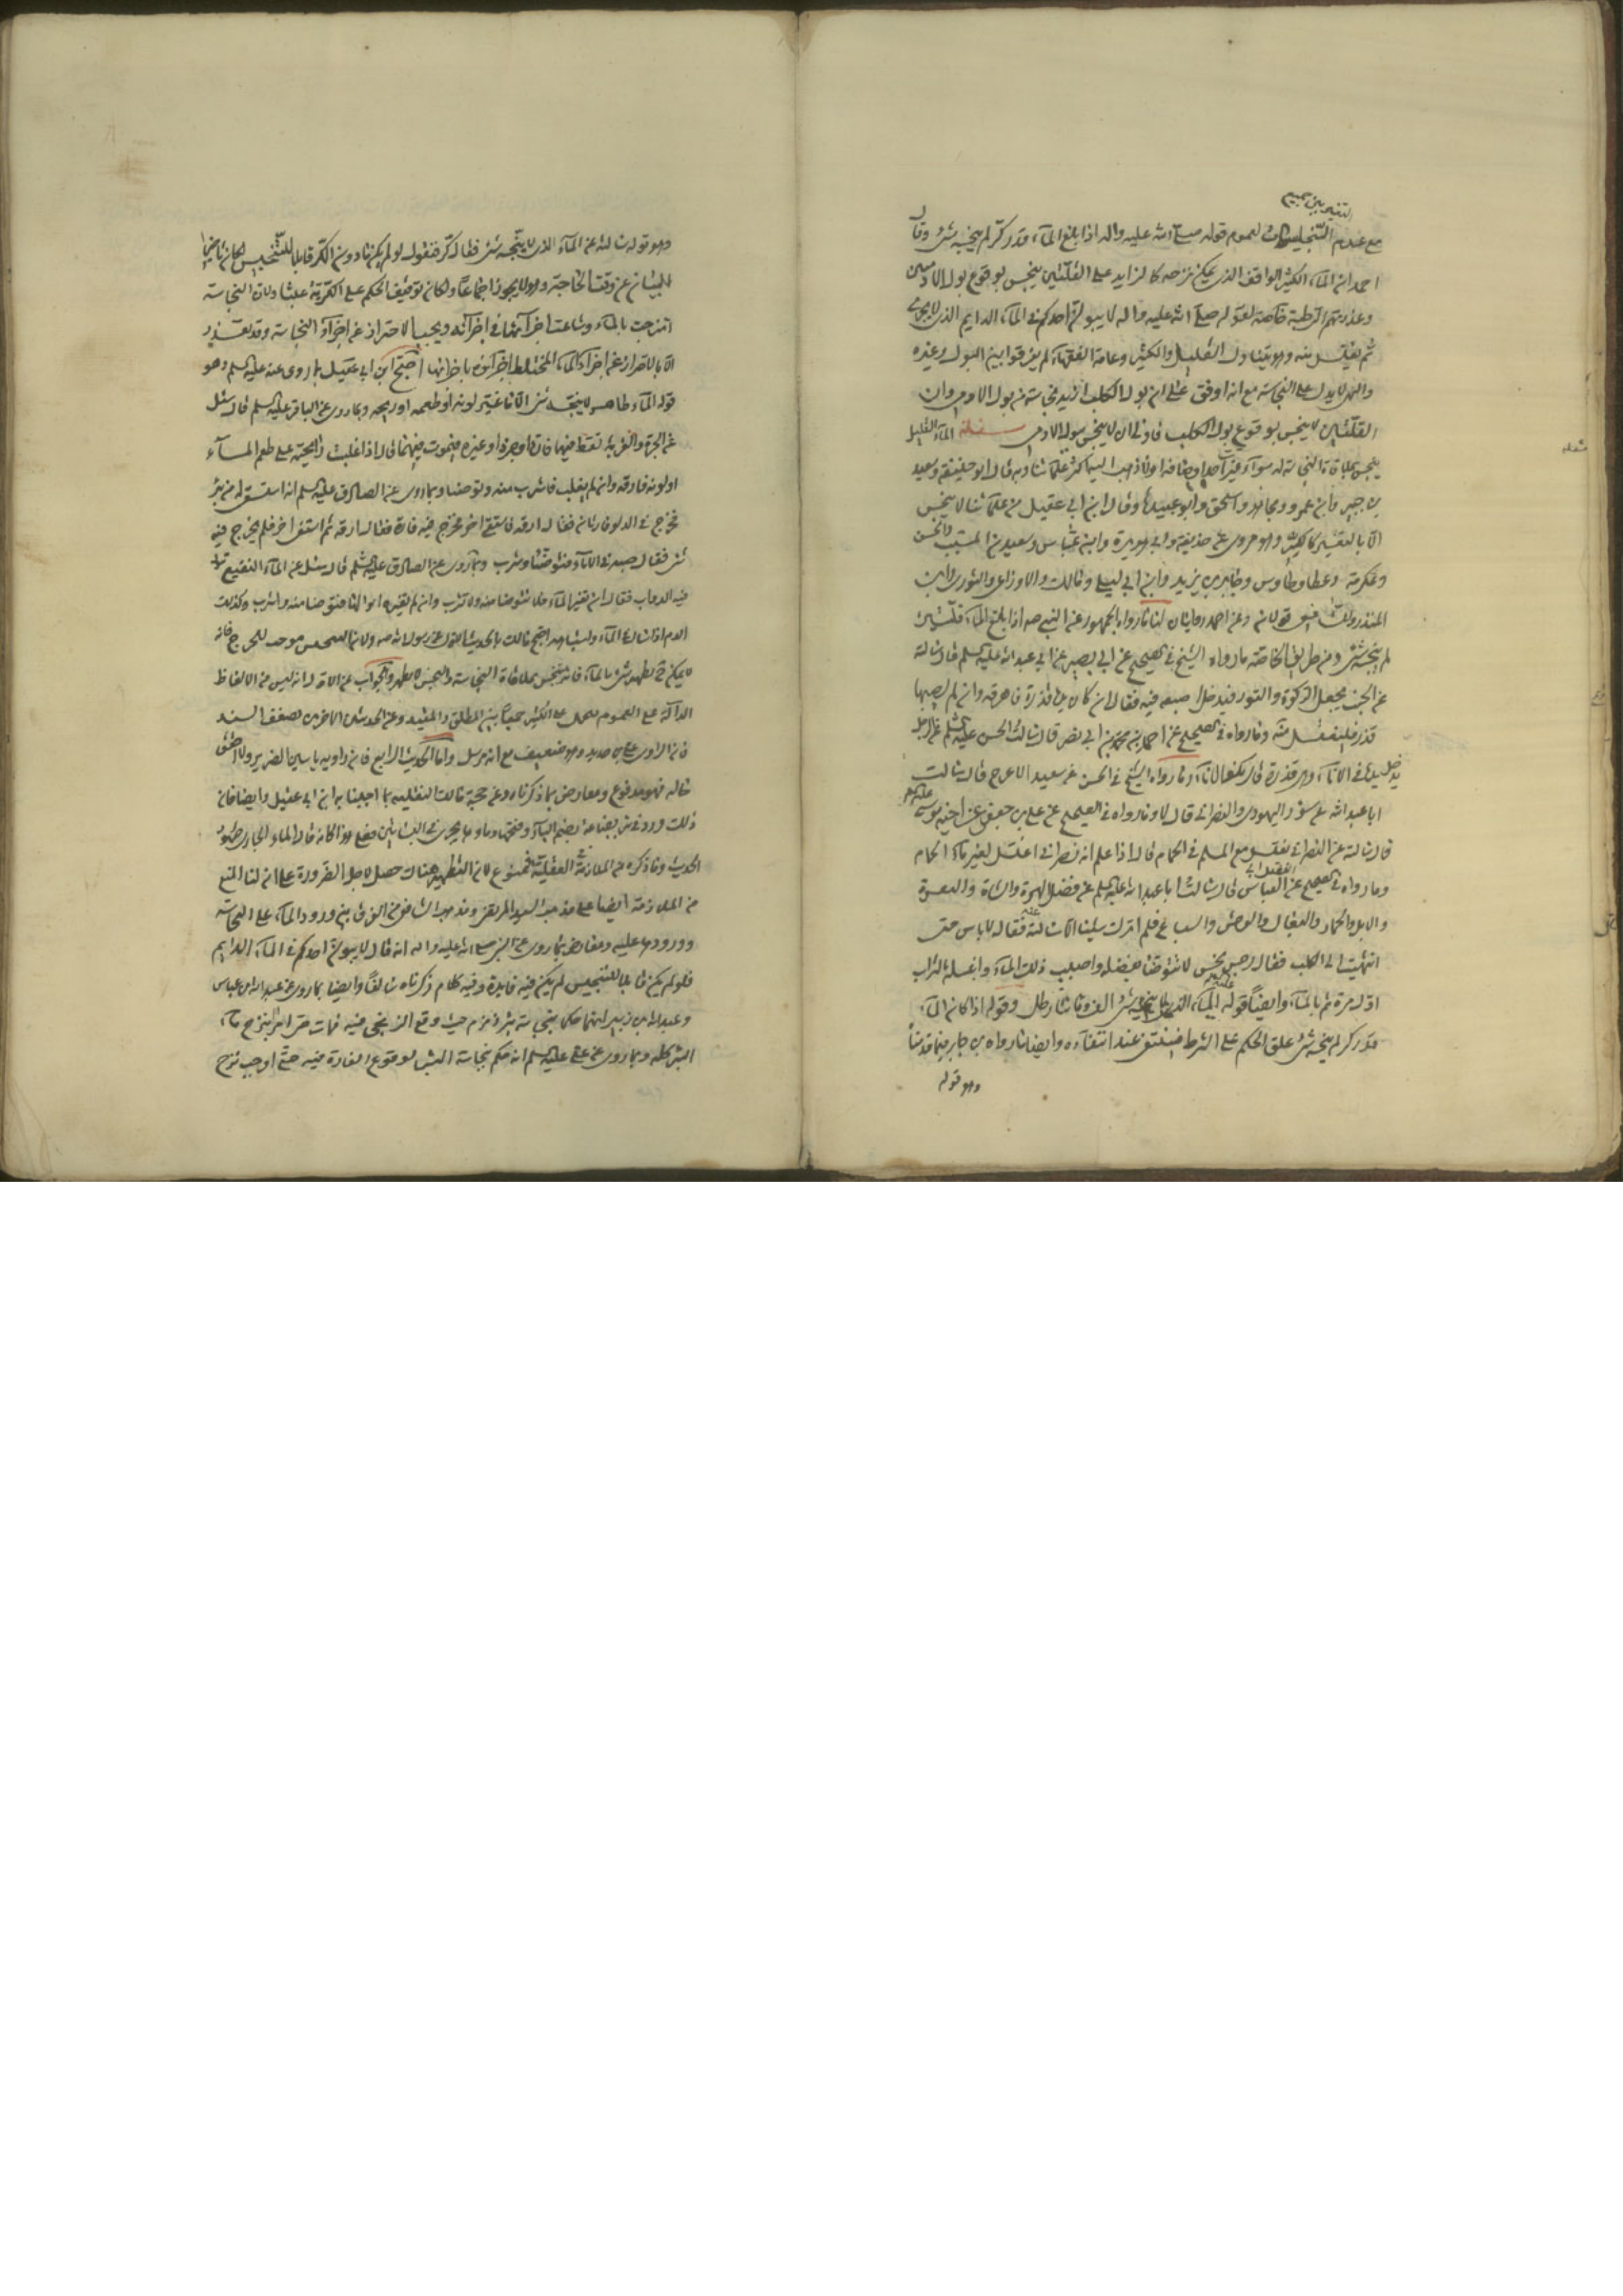 مع عدم التنجيس لعموم قوله صلى الله عليه واله اذا بلغ الماء قدر كر لم ينجسه شئ وقال
احمد ان الماء الكثير الواقف الذى يمكن نزحه كالزايد على القلتين ينجس بوقوع بول الادميين
وعذرتهم الرطبة خاصة لقوله صلى الله عليه واله لا يبولن احدكم فى الماء الدايم الذى لا يجرى
ثم يغتسل منه وهو يتناول القليل والكثير وعامة الفقهاء لم يفرقوا بين البول وغيره
والنهى لا يدل على النجاسة مع انه اوفق على ان بول الكلب ازيد نجاسة من بول الادمى وان
القلتين لا ينجس بوقوع بول الكلب فاولى ان لا ينجس ببول الادمى مسئلة الماء القليل
ينجس بملاقاة النجاسة له سواء غيرت احد اوصافه اولا ذهب اليه اكثر علمائنا وبه قال ابو حنيفة وسعيد
بن جبير وابن عمر ومجاهد واسحق وابو عبيد وقال ابن ابى عقيل من علمائنا لا ينجس
الا بالتغير كالكثير وهو مروى عن حذيفة وابى هريرة وابن عباس وسعيد بن المسيب والحسن
وعكرمة وعطا وطاوس وجابر بن يزيد وابن ابى ليلى ومالك والاوزاعى والثورى وابن
المنذر وللشافعى قولان وعن احمد روايتان لنا ما رواه الجمهور عن النبى صه اذا بلغ الماء قلتين
لم ينجسه شئ ومن طريق الخاصة ما رواه الشيخ فى الصحيح عن ابى بصير عن ابى عبد الله عليه السلم قال سالته
عن الجنب يجعل الركوة والتور فيدخل اصبعه فيه فقال ان كان يده قذرة فاهرقه وان لم يصبها
قذر فليغتسل منه وما رواه فى الصحيح عن احمد بن محمد بن ابى نصر قال سالت ابا الحسن عليه السلم عن الرجل
يدخل يده فى الاناء وهى قذرة قال يكفئ الاناء وما رواه الشيخ فى الحسن عن سعيد الاعرج قال سالت
ابا عبد الله عن سؤر اليهودى والنصرانى قال لا وما رواه فى الصحيح عن على بن جعفر عن اخيه موسى عليه السلم
قال سالته عن النصرانى يغتسل مع المسلم فى الحمام قال اذا علم انه نصرانى اغتسل بغير ماء الحمام
وما رواه فى الصحيح عن الفضل ابى العباس قال سالت ابا عبد الله عليه السلم عن فضل الهرة والشاة والبقرة
والابل والحمار والبغال والوحش والسباع فلم اترك شيئا الا سالته عنه فقال لا باس حتى
انتهيت الى الكلب فقال رجس نجس لا تتوضا بفضله واصبب ذلك الماء واغسله بالتراب
اول مرة ثم بالماء وايضا قوله عليه السلم الماء الذى لا ينجسه شئ الف ومائتا رطل وقوله اذا كان الماء
قدر كر لم ينجسه شئ علق الحكم على الشرط فينتفى عند انتفاءه وايضا ما رواه بن جابر فيما قدمناه
وهو قوله
وهو قوله سالته عن الماء الذى لا ينجسه شئ فقال كر فنقول لو لم يكن مادون الكر قابلا للتنجيس لكان تاخيرا
للبيان عن وقت الحاجة وهو لا يجوز اجماعا ولكان توقيف الحكم على الكرية عبثا ولان النجاسة
امتزجت بالماء وشاعت اجزائها فى اجزائه ويجب الاحتراز عن اجزاء النجاسة وقد تعذر
الا بالاحتراز عن اجزاء الماء المختلط اجزائه باجزائها احتج ابن ابى عقيل بما روى عنه عليه السلم وهو
قوله الماء طاهر لا ينجسه شئ الا ما غير لونه او طعمه او ريحه وبما روى عن الباقر عليه السلم قال سئل
عن الجرة والقربة تسقط فيها فارة او جرذ او غيره فيموت فيها قال اذا غلبت رايحته على طعم الماء
او لونه فارقه وان لم يغلب فاشرب منه وتوضا وبما روى عن الصادق عليه السلم انه استسقى له من بئر
فخرج فى الدلو فارتان فقال ارقه فاستقى اخر فخرج فيه فارة فقال ارقه ثم استقى اخر فلم يخرج فيه
شئ فقال صبه فى الاناء فتوضا وشرب وبما روى عن الصادق عليه السلم قال سئل عن الماء النقيع تبول
فيه الدواب فقال ان تغير الماء فلا تتوضا منه ولا تشرب وان لم تغيره ابوالها فتوضا منه واشرب وكذلك
الدم اذا سال فى الماء واشباهه احتج مالك بالحديث الاول عن رسول الله صه ولان التنجيس موجب للحرج فانه
لا يمكن تطهير شئ بالماء فانه ينجس بملاقاة النجاسة والنجس لا يطهر والجواب عن الاول انه ليس من الالفاظ
الدالة على العموم فيحمل على الكثير جمعا بين المطلق والمقيد وعن الحديثين الاخرين بضعف السند
فان الراوى على بن حديد وهو ضعيف مع انه مرسل واما الحديث الرابع فان راويه ياسين الضرير ولا اعرف
حاله فهو مدفوع ومعارض بما ذكرناه وعن حجة مالك النقلية بما اجبنا به ابن ابى عقيل وايضا فان
ذلك ورد فى بئر بضاعة بضم الباء وفتحها وماؤها يجرى فى البساتين فعلى هذا كانه قال الماء الجارى طهور
الحديث وما ذكره من الملازمة العقلية فممنوع لان التطهير هناك حصل لاجل الضرورة على ان لنا المنع
من الملازمة ايضا على مذهب السيد المرتضى ومذهب الشافعى من الفرق بين ورود الماء على النجاسة
وورودها عليه ومعارض بما روى عن النبى صلى الله عليه واله انه قال لا يبولن احدكم فى الماء الدايم
فلو لم يكن قابلا للتنجيس لم يكن فيه فايدة وفيه كلام ذكرناه سالفا وايضا بما روى عن عبد الله بن عباس
وعبد الله بن زبير انهما حكما بنجاسة بئر زمزم حيث وقع الزنجى فيه فمات حتى امرا بنزح ماء
البئر كله وبما روى عن على عليه السلم انه حكم بنجاسة البئر لوقوع الفارة فيه حتى اوجب نزح